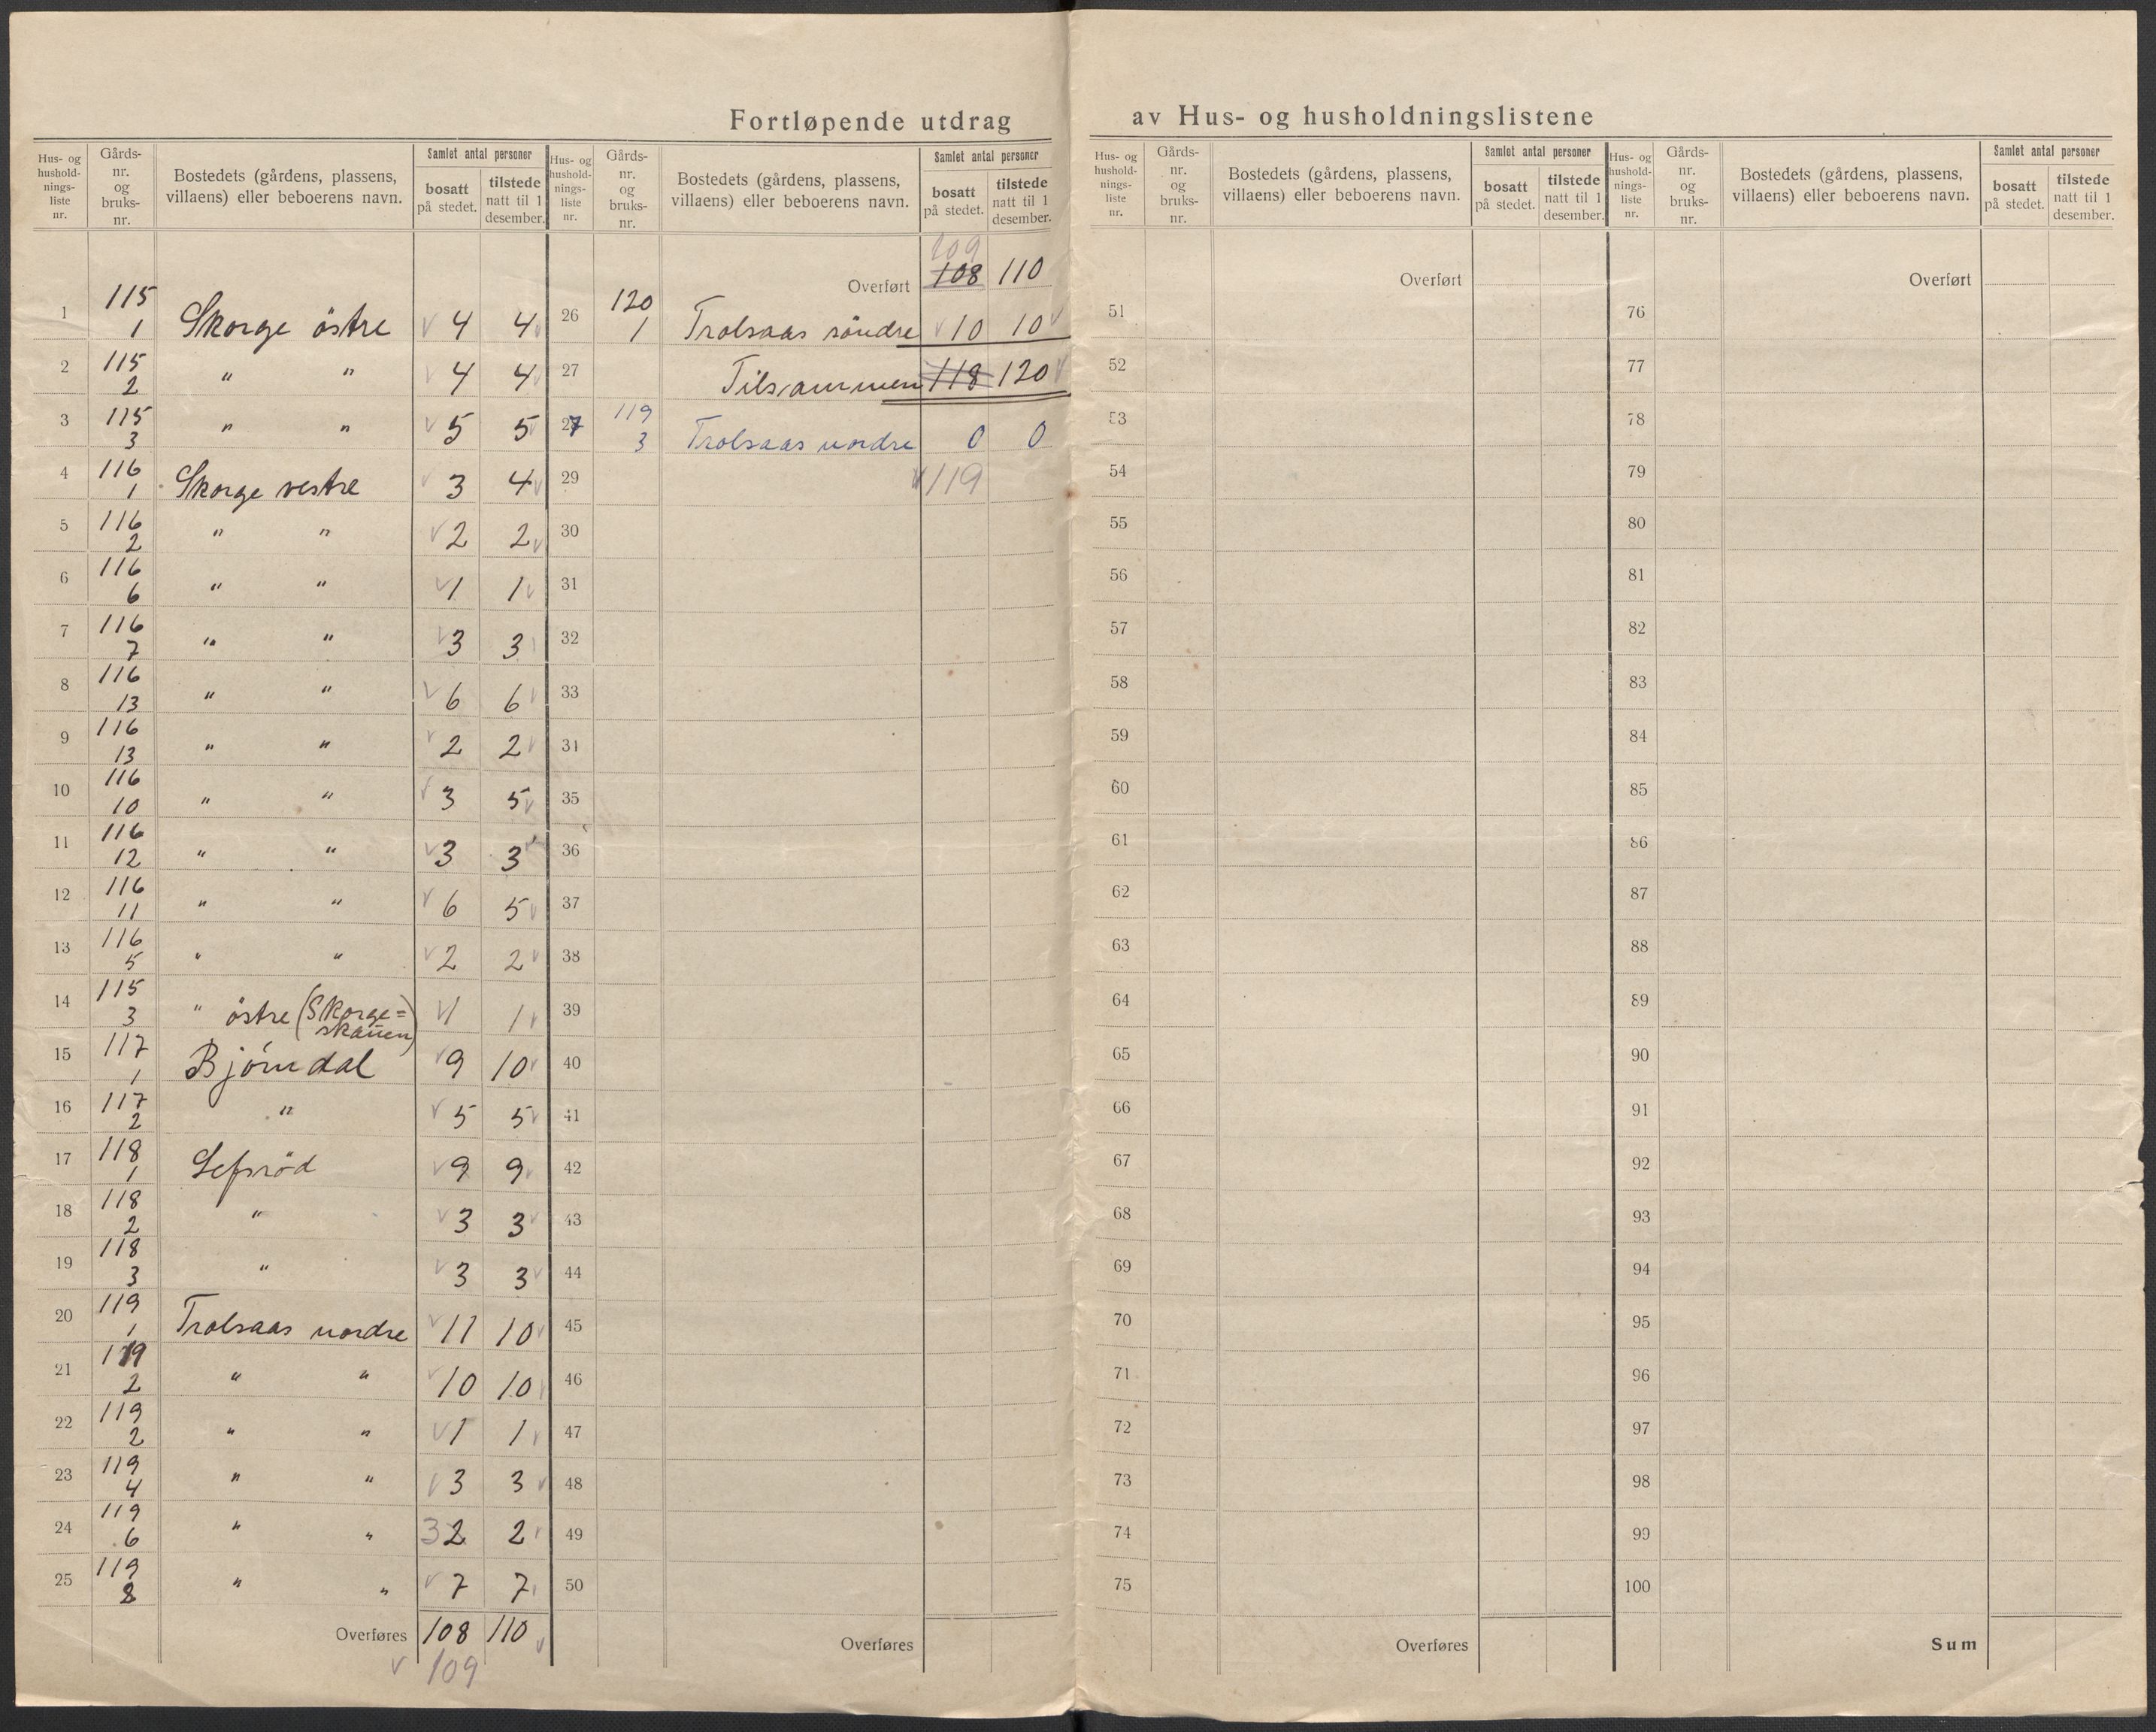 Fortløpende utdrag av Hus- og husholdningslistene
Hus- og hushold-nings-liste nr. Gårds-nr. og bruks-nr. Bostedets (gårdens, plassens, villaens) eller beboerens navn. Samlet antal personer bosatt på stedet. tilstede natt til 1 desember.
1 115 1 Skorge östre 4 4
2 115 2 " " 4 4
3 115 3 " " 5 5
4 116 1 Skorge vestre 3 4
5 116 2 " " 2 2
6 116 6 " " 1 1
7 116 7 " " 3 3
8 116 13 " " 6 6
9 116 13 " " 2 2
10 116 10 " " 3 5
11 116 12 " " 3 3
12 116 11 " " 6 5
13 116 5 " " 2 2
14 115 3 " östre (Skorge=skauen) 1 1
15 117 1 Bjørndal 9 10
16 117 2 " 5 5
17 118 1 Lefsröd 9 9
18 118 2 " 3 3
19 118 3 " 3 3
20 119 1 Trolsaas nordre 11 10
21 119 2 " " 10 10
22 119 2 " " 1 1
23 119 4 " " 3 3
24 119 6 " " 3 2 2
25 119 8 " " 7 7
Overføres 108 110
109
Hus- og hushold-nings-liste nr. Gårds-nr. og bruks-nr. Bostedets (gårdens, plassens, villaens) eller beboerens navn. Samlet antal personer bosatt på stedet. tilstede natt til 1 desember.
109
Overført 108 110
26 120 1 Trolsaas söndre 10 10
27 Tilsammen 118 120
27 119 3 Trolsaas nordre 0 0
29 119
30
31
32
33
31
35
36
37
38
39
40
41
42
43
44
45
46
47
48
49
50
Overføres
Hus- og hushold-nings-liste nr. Gårds-nr. og bruks-nr. Bostedets (gårdens, plassens, villaens) eller beboerens navn. Samlet antal personer bosatt på stedet. tilstede natt til 1 desember.
Overført
51
52
53
54
55
56
57
58
59
60
61
62
63
64
65
66
67
68
69
70
71
72
73
74
75
Overføres
Hus- og hushold-nings-liste nr. Gårds-nr. og bruks-nr. Bostedets (gårdens, plassens, villaens) eller beboerens navn. Samlet antal personer bosatt på stedet. tilstede natt til 1 desember.
Overført
76
77
78
79
80
81
82
83
84
85
86
87
88
89
90
91
92
93
94
95
96
97
98
99
100
Sum